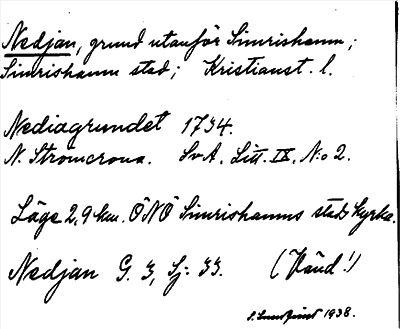 Nedjan, grund utanför Simrishamn;
Simrishamn stad; Kristianst. l.
Nediagrundet 1734.
N. Strömcrona. SvA. Litt. IX. N:o 2.
Läge 2,9 km. ÖNÖ Simrishamns stads kyrka.
Nedjan G. 3, Sj: 33. (Vänd!)
1938.